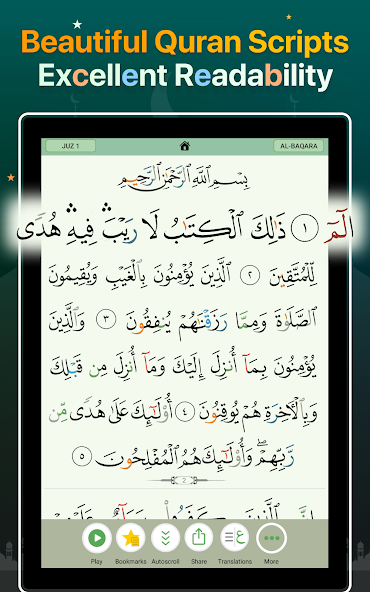 Beautiful Quran Scripts
Excellent Readability
JUZ 1
AL-BAQARA
بِسْمِ ٱللَّهِ ٱلرَّحْمَٰنِ ٱلرَّحِيمِ
الٓمٓ ١ ذَٰلِكَ ٱلْكِتَٰبُ لَا رَيْبَ ۛ فِيهِ ۛ هُدًى
لِّلْمُتَّقِينَ ٢ ٱلَّذِينَ يُؤْمِنُونَ بِٱلْغَيْبِ وَيُقِيمُونَ
ٱلصَّلَوٰةَ وَمِمَّا رَزَقْنَٰهُمْ يُنفِقُونَ ٣ وَٱلَّذِينَ
يُؤْمِنُونَ بِمَآ أُنزِلَ إِلَيْكَ وَمَآ أُنزِلَ مِن قَبْلِكَ
وَبِٱلْءَاخِرَةِ هُمْ يُوقِنُونَ ٤ أُو۟لَٰٓئِكَ عَلَىٰ هُدًى مِّن
رَّبِّهِمْ ۖ وَأُو۟لَٰٓئِكَ هُمُ ٱلْمُفْلِحُونَ ٥
2
Play
Bookmarks
Autoscroll
Share
Translations
More